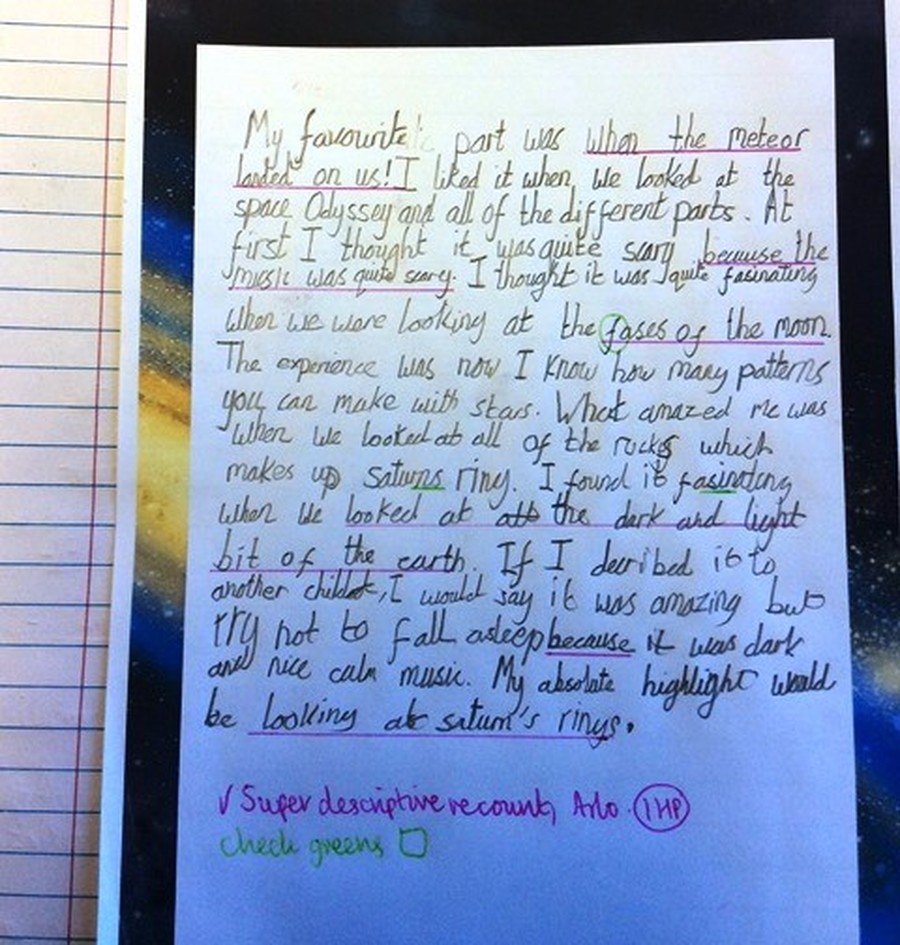 My favourite part was when the meteor
landed on us! I liked it when we looked at the
space Odyssey and all of the different parts. At
first I thought it was quite scary because the
music was quite scary. I thought it was quite fasinating
when we were looking at the fases of the moon.
The experience was now I know how many patterns
you can make with stars. What amazed me was
when we looked at all of the rocks which
makes up saturns ring. I found it fasinating
when we looked at the dark and light
bit of the earth. If I decribed it to
another child, I would say it was amazing but
try not to fall asleep because it was dark
and nice calm music. My absolute highlight would
be looking at saturn's rings.
✓ Super descriptive recount, Arlo. 1HP
check greens